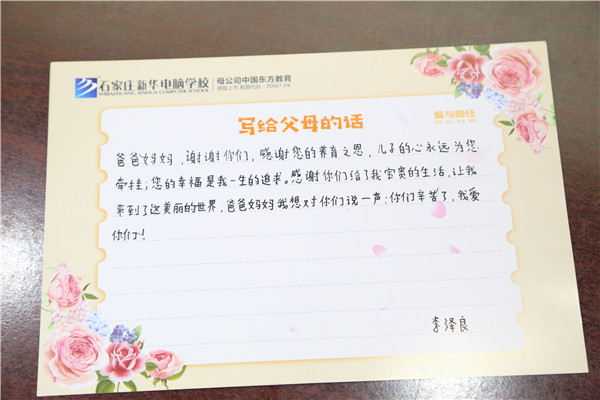 石家庄新华电脑学校
SHIJIAZHUANG XINHUA COMPUTER SCHOOL
母公司中国东方教育
港股上市 股票代码：00667.HK
写给父母的话
爱与责任
爸爸妈妈，谢谢你们，感谢您的养育之恩，儿子的心永远为您
牵挂；您的幸福是我一生的追求。感谢你们给了我宝贵的生活，让我
来到了这美丽的世界，爸爸妈妈我想对你们说一声：你们辛苦了，我爱
你们！
李泽良